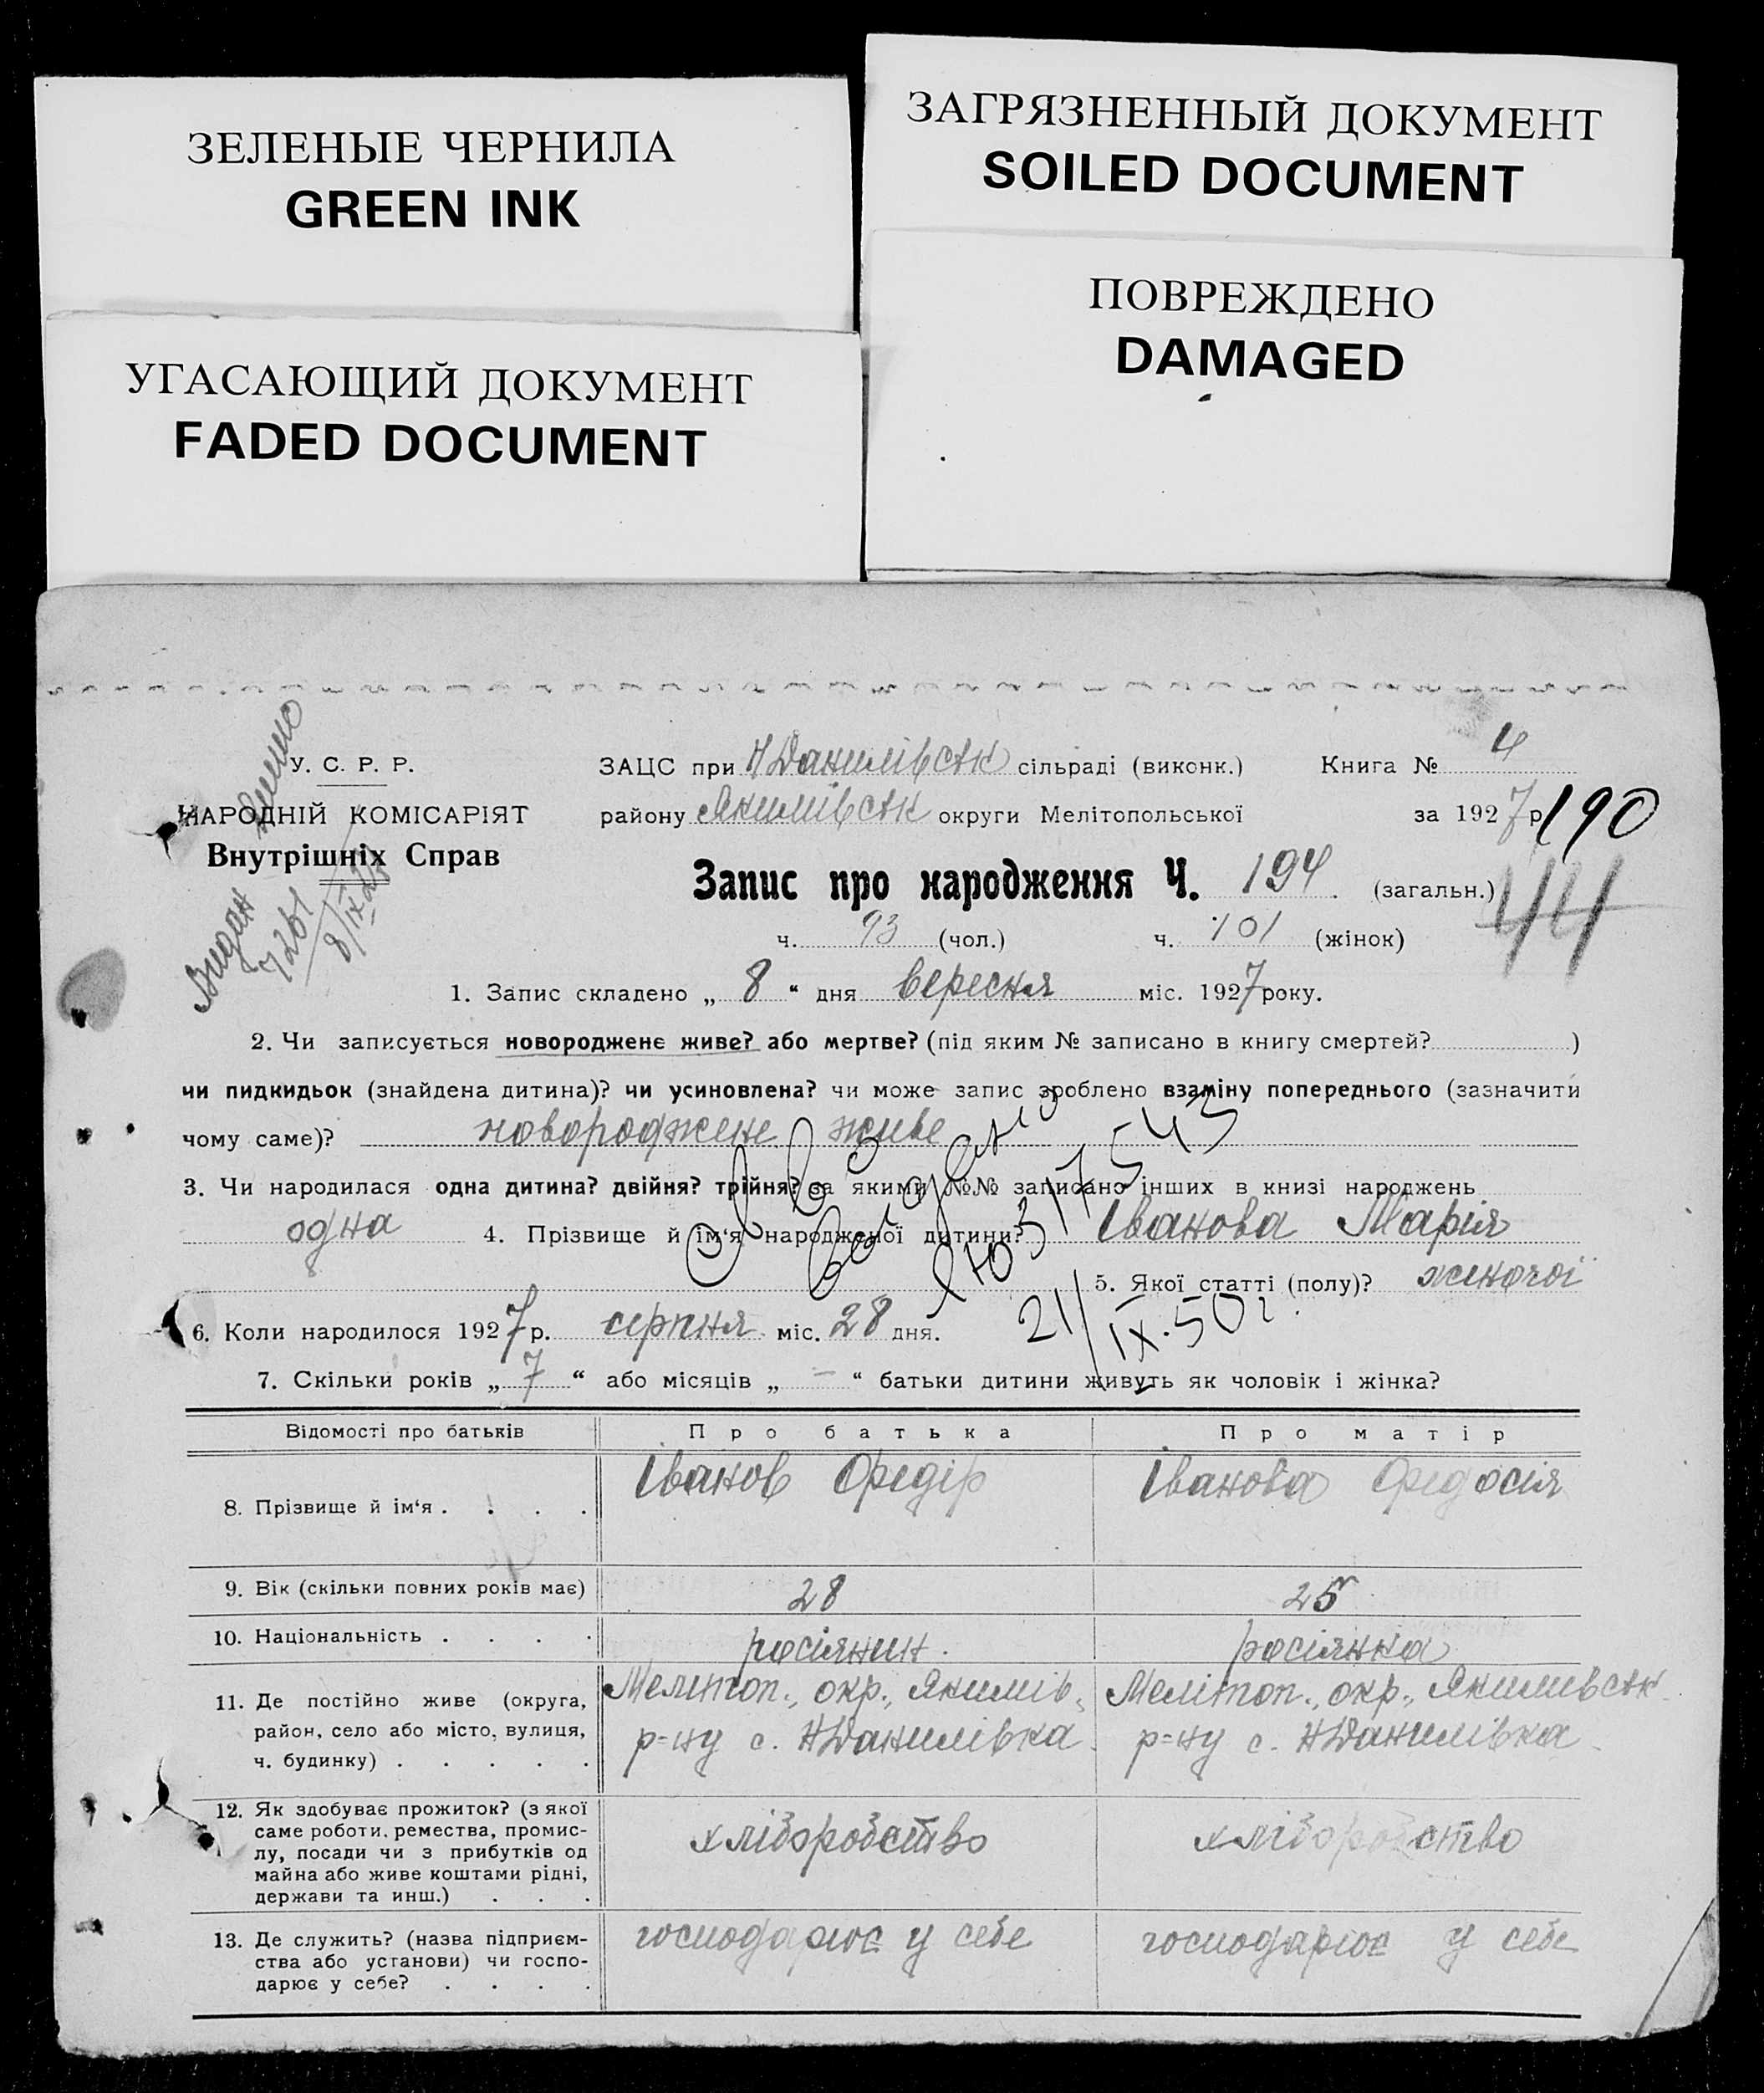 ЗЕЛЕНЫЕ ЧЕРНИЛА
GREEN INK
УГАСАЮЩИЙ ДОКУМЕНТ
FADED DOCUMENT
ЗАГРЯЗНЕННЫЙ ДОКУМЕНТ
SOILED DOCUMENT
ПОВРЕЖДЕНО
DAMAGED
У. С. Р. Р.
НАРОДНІЙ КОМІСАРІЯТ
Внутрішніх Справ
Видан
7261
8/IX 27
ЗАЦС при Н Данилівськ сільраді (виконк.) Книга № 4
району Якимівськ округи Мелітопольської за 1927 р
190
Запис про народження Ч. 194 (загальн.)
44
ч. 93 (чол.) ч. 101 (жінок)
1. Запис складено „ 8 “ дня вересня міс. 1927 року.
2. Чи записується новороджене живе? або мертве? (під яким № записано в книгу смертей? )
чи пидкидьок (знайдена дитина)? чи усиновлена? чи може запис зроблено взаміну попереднього (зазначити
чому саме)? новороджене живе
3. Чи народилася одна дитина? двійня? трійня? за якими №№ записано інших в книзі народжень
одна 4. Прізвище й ім‘я народженої дитини? Іванова Марія
5. Якої статті (полу)? жіночої
317543
21/IX.50г.
6. Коли народилося 1927 р. серпня міс. 28 дня.
7. Скільки років „ 7 “ або місяців „ - “ батьки дитини живуть як чоловік і жінка?
Відомості про батьків Про батька Про матір
8. Прізвище й ім‘я . . . . Іванов Федір Іванова Федосія
9. Вік (скільки повних років має) 28 25
10. Національність . . . . росіянин росіянка
11. Де постійно живе (округа, Мелітоп., окр., Якимів- Мелітоп., окр., Якимівськ
район, село або місто, вулиця, р=ну с. Н Данилівка р=ну с. Н Данилівка
ч. будинку) . . . . .
12. Як здобуває прожиток? (з якої
саме роботи, ремества, промис- хліборобство хліборобство
лу, посади чи з прибутків од
майна або живе коштами рідні,
держави та инш.) . . .
13. Де служить? (назва підприєм- господарює у себе господарює у себе
ства або установи) чи госпо-
дарює у себе? . . . .